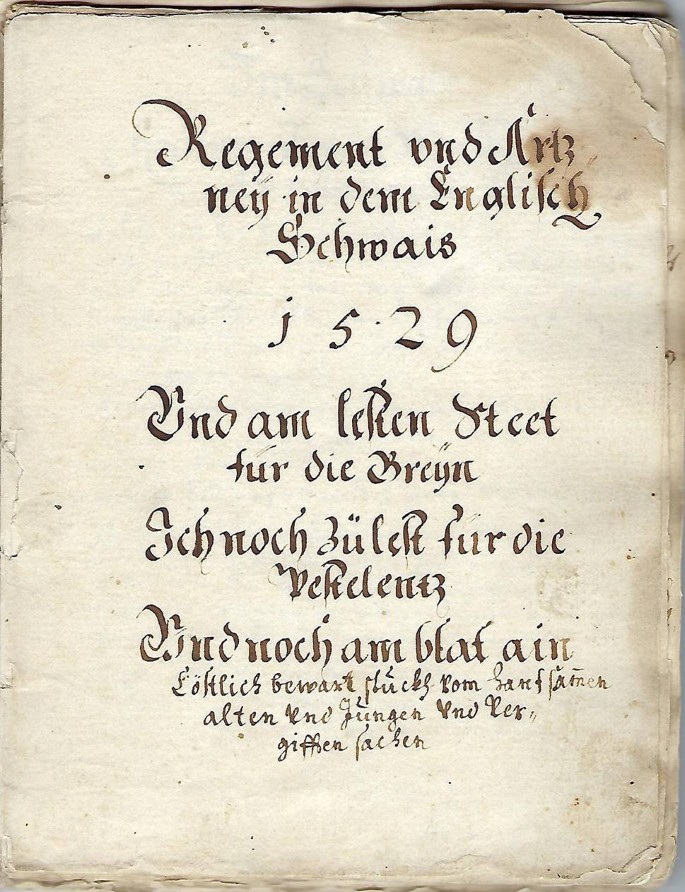 Regement vnd Ärtz
neÿ in dem Englisch
Schwais
1529
Vnd am lesten Steet
für die Breÿn
Ich noch zü lest für die
Pestelentz
Vnd noch am blat ain
köstlich bewärt stückh vom hanfsamen
alten vnd Jungen vnd Ver„
gifften sachen